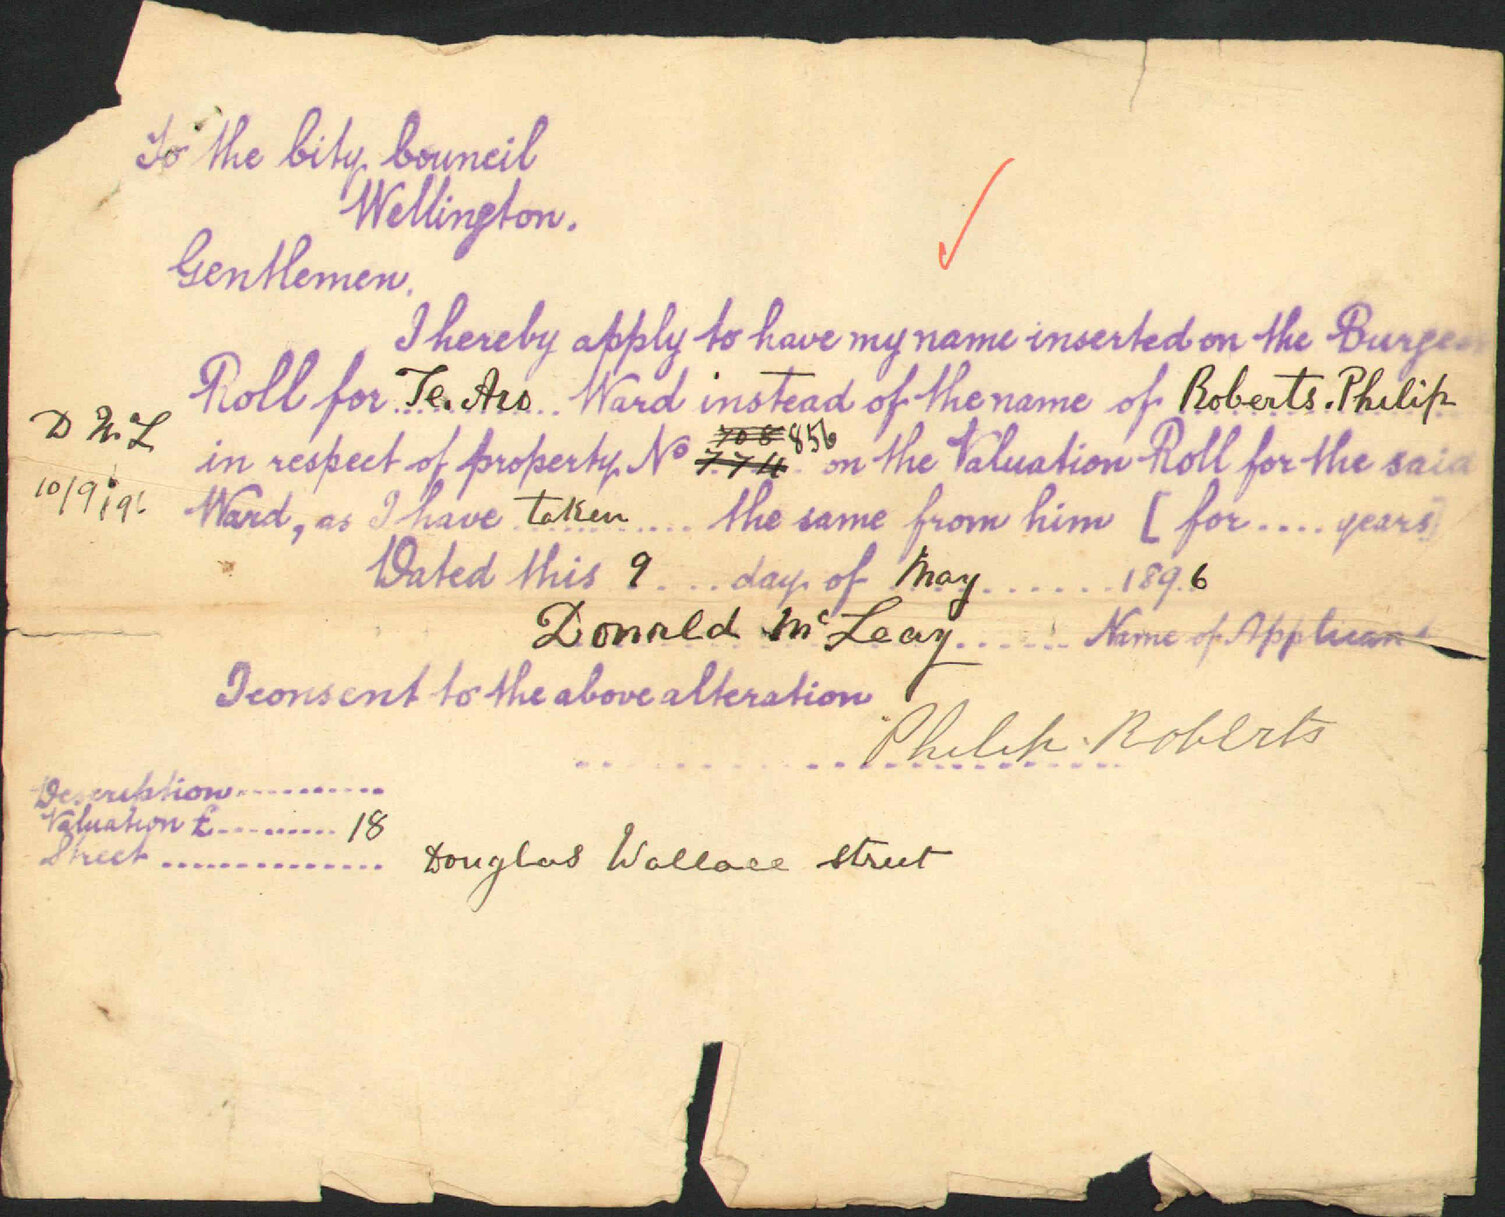 To the City Council
Wellington.
Gentlemen,
I hereby apply to have my name inserted on the Burgess
Roll for Te. Aro Ward instead of the name of Roberts. Philip
708 856
in respect of property No 774 on the Valuation Roll for the said
Ward, as I have taken the same from him [for .... years]
Dated this 9 day of May 1896
Donald McLeay Name of Applicant
I consent to the above alteration
Philip Roberts
Description
Valuation £ 18
Street Douglas Wallace street
D McL
10/9